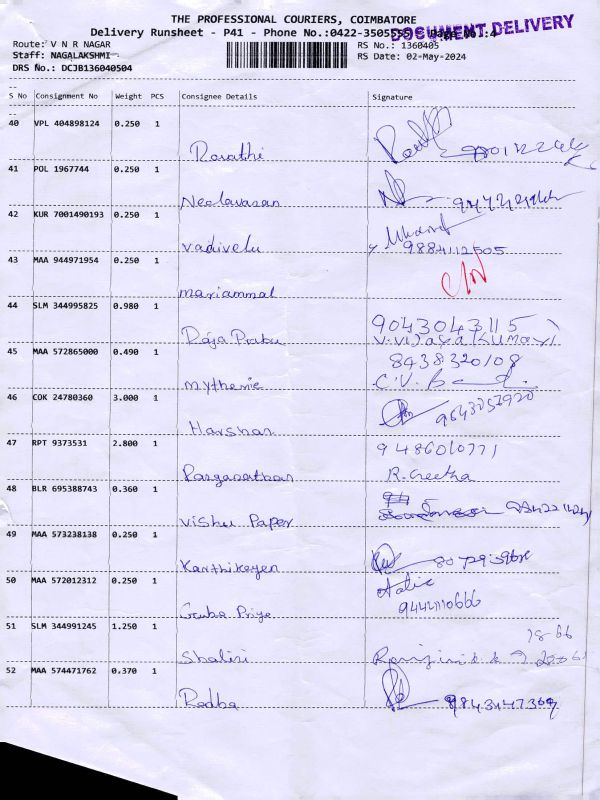 THE PROFESSIONAL COURIERS, COIMBATORE
DOCUMENT DELIVERY
Delivery Runsheet - P41 - Phone No.:0422-3505555 Page No :4
Route: V N R NAGAR
RS No.: 1360405
Staff: NAGALAKSHMI
RS Date: 02-May-2024
DRS No.: DCJB136040504
S No Consignment No Weight PCS Consignee Details Signature
40 VPL 404898124 0.250 1
Revathi
41 POL 1967744 0.250 1
Neelavasan
42 KUR 7001490193 0.250 1
Vadivelu 9884112505
43 MAA 944971954 0.250 1
mariammal
44 SLM 344995825 0.980 1
9043043115
Raja Prabu V. Vijaya Kumari
45 MAA 572865000 0.490 1
8438320108
C.V.
46 COK 24780360 3.000 1
Harshan
47 RPT 9373531 2.800 1
9486010771
R. Geetha
48 BLR 695388743 0.360 1
Vishu Paper
49 MAA 573238138 0.250 1
Karthikeyen
50 MAA 572012312 0.250 1
9442110666
Guba Priya
51 SLM 344991245 1.250 1
Shalini
52 MAA 574471762 0.370 1
Redba 9843147369